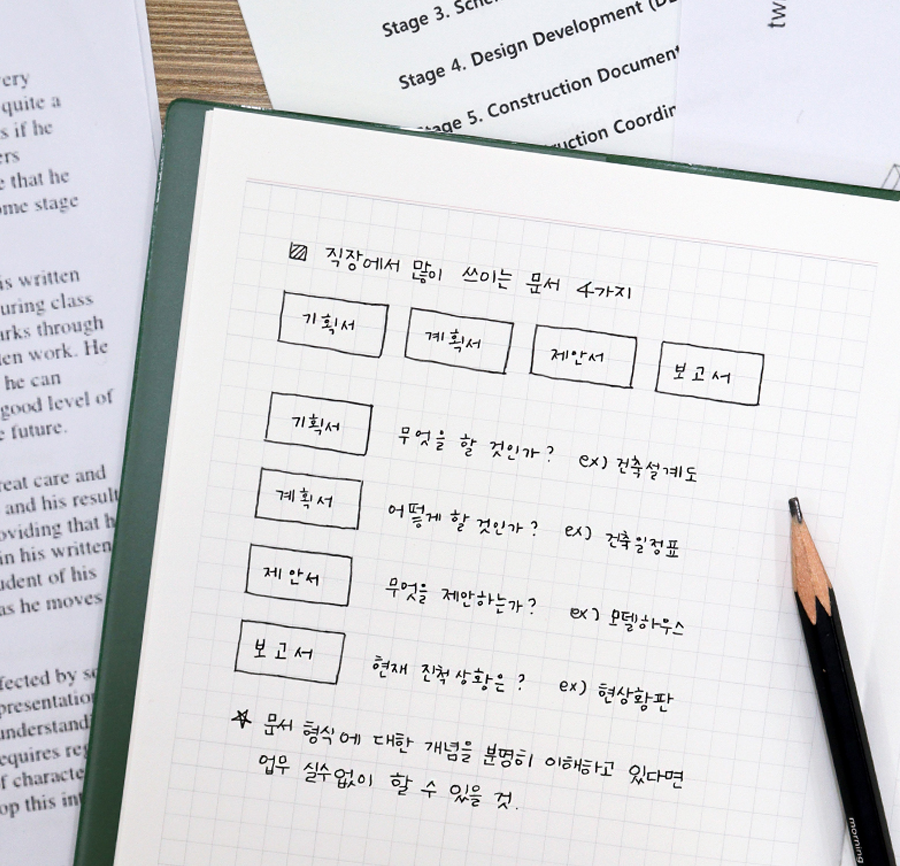 very
quite a
s if he
ers
e that he
ome stage
is written
uring class
arks through
ten work. He
he can
good level of
e future.
reat care and
and his result
oviding that h
in his written
udent of his
as he moves
fected by so
presentation
understandi
equires reg
of characte
op this int
Stage 3. Sche
Stage 4. Design Development (D
Stage 5. Construction Document
uction Coordin
tw
▨ 직장에서 많이 쓰이는 문서 4가지
기획서 계획서 제안서 보고서
기획서 무엇을 할 것인가? ex) 건축설계도
계획서 어떻게 할 것인가? ex) 건축일정표
제안서 무엇을 제안하는가? ex) 모델하우스
보고서 현재 진척상황은? ex) 현상황판
☆ 문서 형식에 대한 개념을 분명히 이해하고 있다면
업무 실수없이 할 수 있을 것.
morning